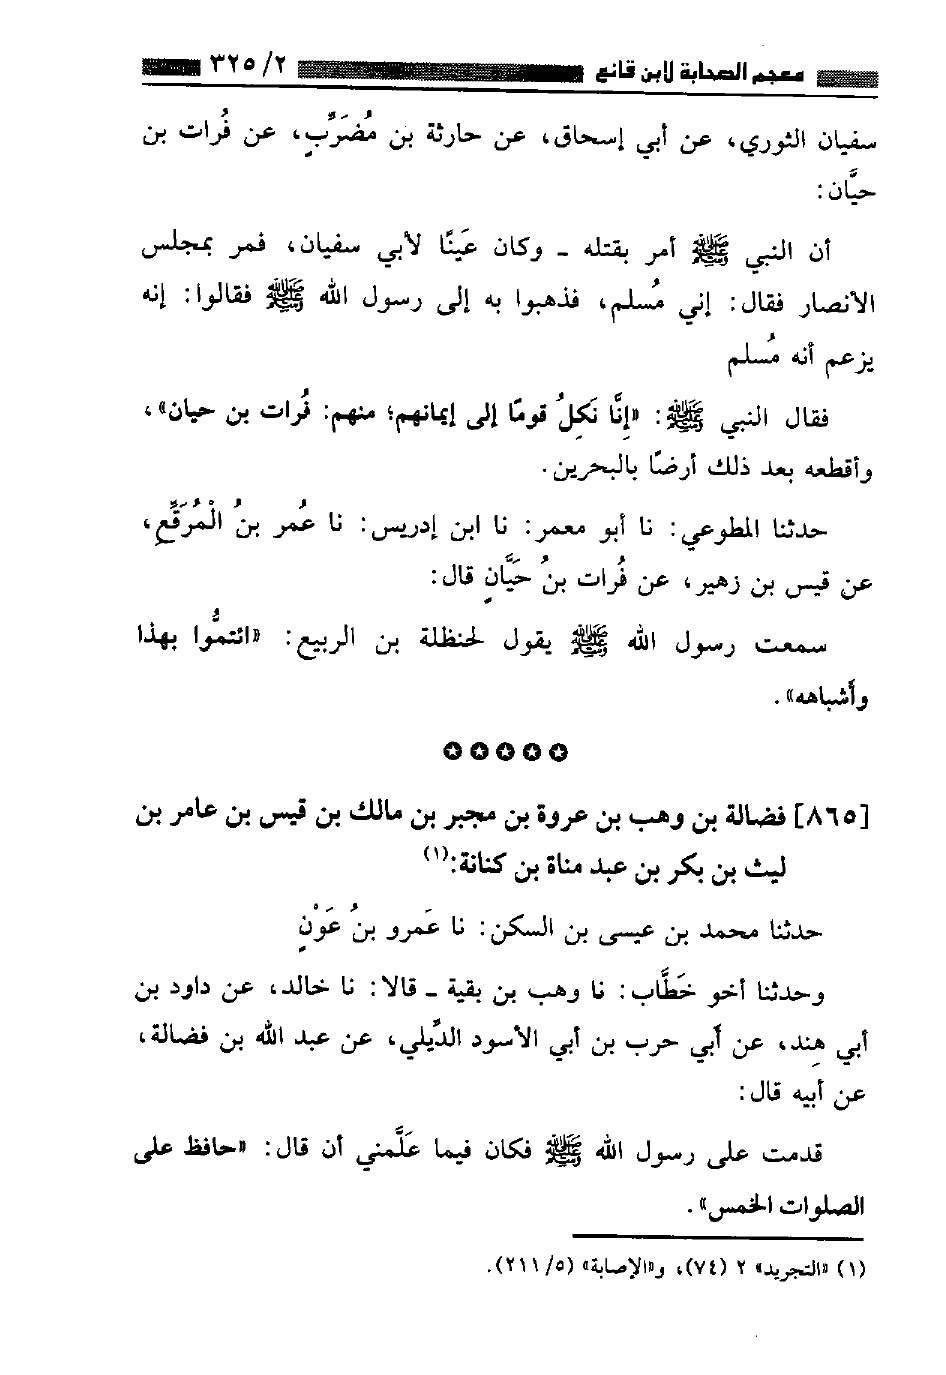 معجم الصحابة لابن قانع ٣٢٥/٢
سفيان الثوري، عن أبي إسحاق، عن حارثة بن مُضَرِّبٍ، عن فُرات بن
حيَّان:
أن النبي ﷺ أمر بقتله ـ وكان عَينًا لأبي سفيان، فمر بمجلس
الأنصار فقال: إني مُسلم، فذهبوا به إلى رسول الله ﷺ فقالوا: إنه
يزعم أنه مُسلم
فقال النبي ﷺ: «إِنَّا نَكِلُ قومًا إلى إيمانهم؛ منهم: فُرات بن حيان»،
وأقطعه بعد ذلك أرضًا بالبحرين.
حدثنا المطوعي: نا أبو معمر: نا ابن إدريس: نا عُمر بنُ الْمُرَقِّعِ،
عن قيس بن زهير، عن فُرات بنُ حَيَّانٍ قال:
سمعت رسول الله ﷺ يقول لحنظلة بن الربيع: «ائتمُّوا بهذا
وأَشباهه».
✪✪✪✪✪
[٨٦٥] فضالة بن وهب بن عروة بن مجبر بن مالك بن قيس بن عامر بن
ليث بن بكر بن عبد مناة بن كنانة:(١)
حدثنا محمد بن عيسى بن السكن: نا عَمرو بنُ عَوْنٍ
وحدثنا أخو خَطَّاب: نا وهب بن بقية ـ قالا: نا خالد، عن داود بن
أبي هِند، عن أَبي حرب بن أبي الأسود الدِّيلي، عن عبد الله بن فضالة،
عن أبيه قال:
قدمت على رسول الله ﷺ فكان فيما عَلَّمني أن قال: «حافظ على
الصلوات الخمس».
(١) «التجريد» ٢ (٧٤)، و«الإصابة» (٢١١/٥).